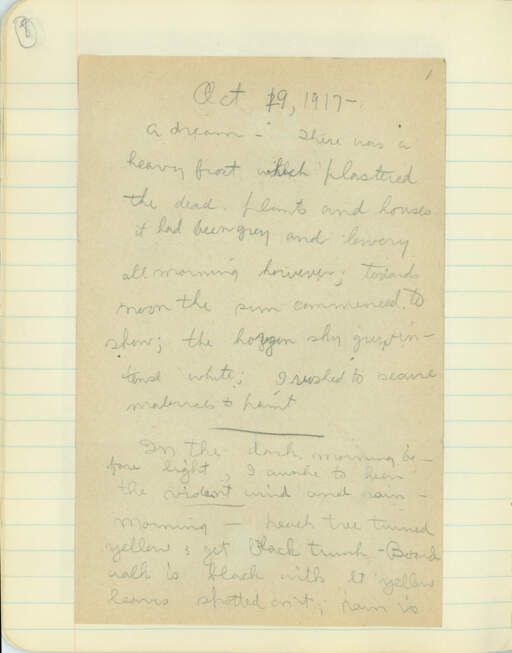 8
1
Oct 19, 1917 –
A dream – There was a
heavy frost which plastered
the dead plants and houses
it had been grey and lowery
all morning however; towards
noon the sun commenced to
show; the sky grew in–
tense white; I rushed to secure
materials to paint
In the dark morning be–
fore light, I awoke to hear
the violent wind and rain –
Morning – peach tree turned
yellow; yet black trunk – Board
walk is black with lt yellow
leaves spotted on it; rain is